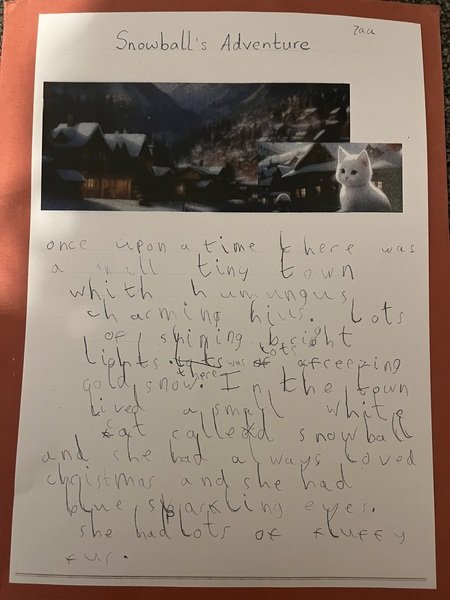 Zac
Snowball's Adventure
once upon a time there was
a small tiny town
whith humungus
charming hills. Lots
of shining bright
lights. there was lots of freezing
gold snow. In the town
lived a small white
cat called snowball
and she had always loved
christmas and she had
blue sparkling eyes.
she had lots of fluffy
fur.